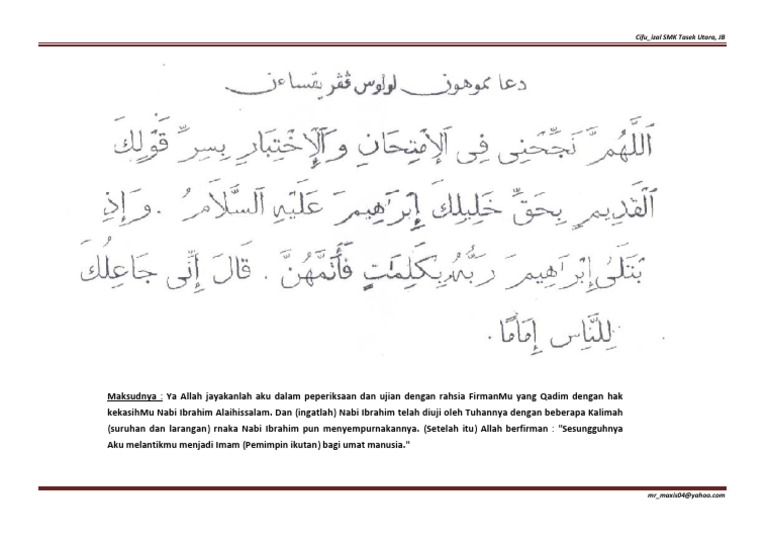 Cifu_izal SMK Tasek Utara, JB
دعا موهون لولوس ڤڤريقساءن
اَللَّهُمَّ نَجِّحْنِى فِى الْاِمْتِحَانِ وَالْاِخْتِبَارِ بِسِرِّ قَوْلِكَ
الْقَدِيمِ بِحَقِّ خَلِيلِكَ إِبْرَاهِيمَ عَلَيْهِ السَّلَامُ . وَإِذِ
بْتَلَىٰ إِبْرَاهِيمَ رَبُّهُ بِكَلِمَٰتٍ فَأَتَمَّهُنَّ . قَالَ إِنِّى جَاعِلُكَ
لِلنَّاسِ إِمَامًا .
Maksudnya : Ya Allah jayakanlah aku dalam peperiksaan dan ujian dengan rahsia FirmanMu yang Qadim dengan hak
kekasihMu Nabi Ibrahim Alaihissalam. Dan (ingatlah) Nabi Ibrahim telah diuji oleh Tuhannya dengan beberapa Kalimah
(suruhan dan larangan) rnaka Nabi Ibrahim pun menyempurnakannya. (Setelah itu) Allah berfirman : "Sesungguhnya
Aku melantikmu menjadi Imam (Pemimpin ikutan) bagi umat manusia."
mr_maxis04@yahoo.com